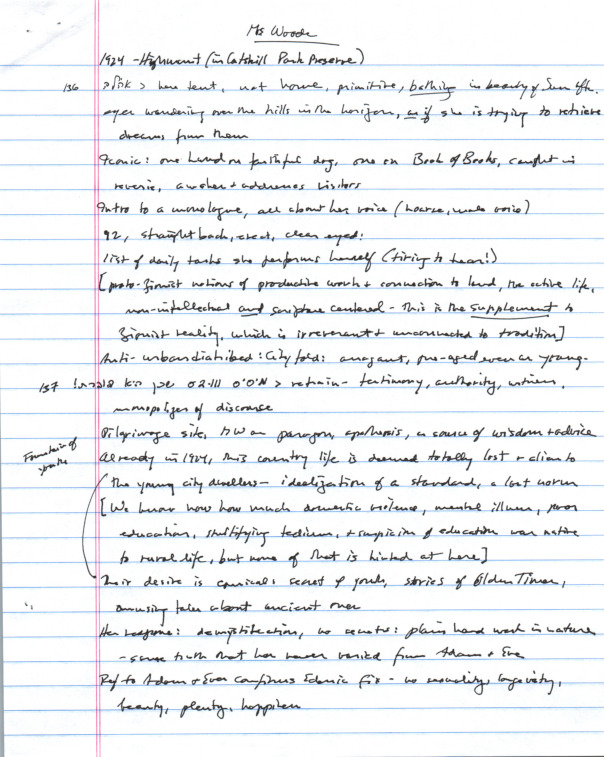 Ms Woods
1924 - Highmount (in Catskill Park Preserve)
136 > here tent, not home, primitive, bathing in beauty of Sun
eyes wandering over the hills in the horizon, as if she is trying to retrieve
dreams from them
Iconic: one hand on faithful dog, one on Book of Books, caught in
reverie, awakes + addresses visitors
Intro to a monologue, all about her voice (hoarse, male voice)
92, straight back, erect, clear eyed!
list of daily tasks she performs herself (tiring to hear!)
[proto-Zionist notions of productive work + connection to land, the active life,
non-intellectual and scripture centered - this is the supplement to
Zionist reality, which is irreverent + unconnected to tradition]
Anti-urban diatribe: City folk: arrogant, pre-aged even as young -
137 > refrain - testimony, authority, witness,
monopolizes of discourse
Pilgrimage site, MW as paragon, apotheosis, a source of wisdom + advice
Fountain of youth
Already in 1924, this country life is deemed totally lost + alien to
the young city dwellers - idealization of a standard, a lost norm
[We know now how much domestic violence, mental illness, poor
education, stultifying tedium, + suspicion of education was native
to rural life, but none of that is hinted at here]
Their desire is comical: secret of youth, stories of Olden Times,
amusing tales about ancient ones
Her response: demystification, no secrets: plain hard work in nature
- same truth that has never varied from Adam + Eve
Ref to Adam + Eve confirms Edenic - no longevity,
beauty, plenty, happiness